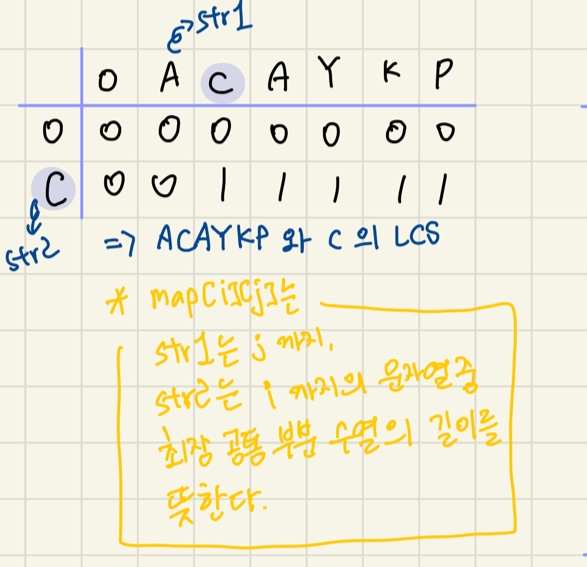 str1
0 A C A Y K P
0 0 0 0 0 0 0 0
C 0 0 1 1 1 1 1
str2
=> ACAYKP 와 C 의 LCS
* map[i][j]는
str1는 j 까지,
str2는 i 까지의 문자열중
최장 공통 부분 수열의 길이를
뜻한다.